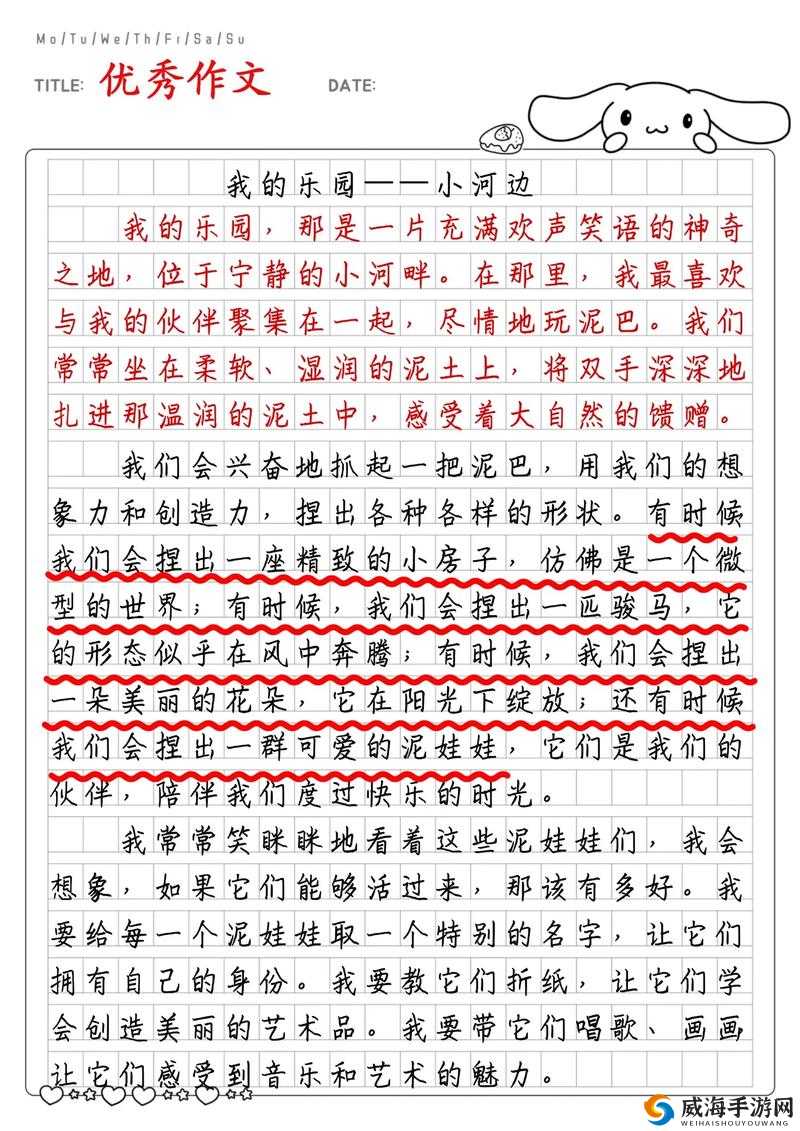 Mo/Tu/We/Th/Fr/Sa/Su
TITLE: 优秀作文 DATE:
我的乐园——小河边
我的乐园，那是一片充满欢声笑语的神奇
之地，位于宁静的小河畔。在那里，我最喜欢
与我的伙伴聚集在一起，尽情地玩泥巴。我们
常常坐在柔软、湿润的泥土上，将双手深深地
扎进那温润的泥土中，感受着大自然的馈赠。
我们会兴奋地抓起一把泥巴，用我们的想
象力和创造力，捏出各种各样的形状。有时候
我们会捏出一座精致的小房子，仿佛是一个微
型的世界；有时候，我们会捏出一匹骏马，它
的形态似乎在风中奔腾；有时候，我们会捏出
一朵美丽的花朵，它在阳光下绽放；还有时候
我们会捏出一群可爱的泥娃娃，它们是我们的
伙伴，陪伴我们度过快乐的时光。
我常常笑眯眯地看着这些泥娃娃们，我会
想象，如果它们能够活过来，那该有多好。我
要给每一个泥娃娃取一个特别的名字，让它们
拥有自己的身份。我要教它们折纸，让它们学
会创造美丽的艺术品。我要带它们唱歌、画画
让它们感受到音乐和艺术的魅力。
威海手游网
WEIHAISHOUYOUWANG